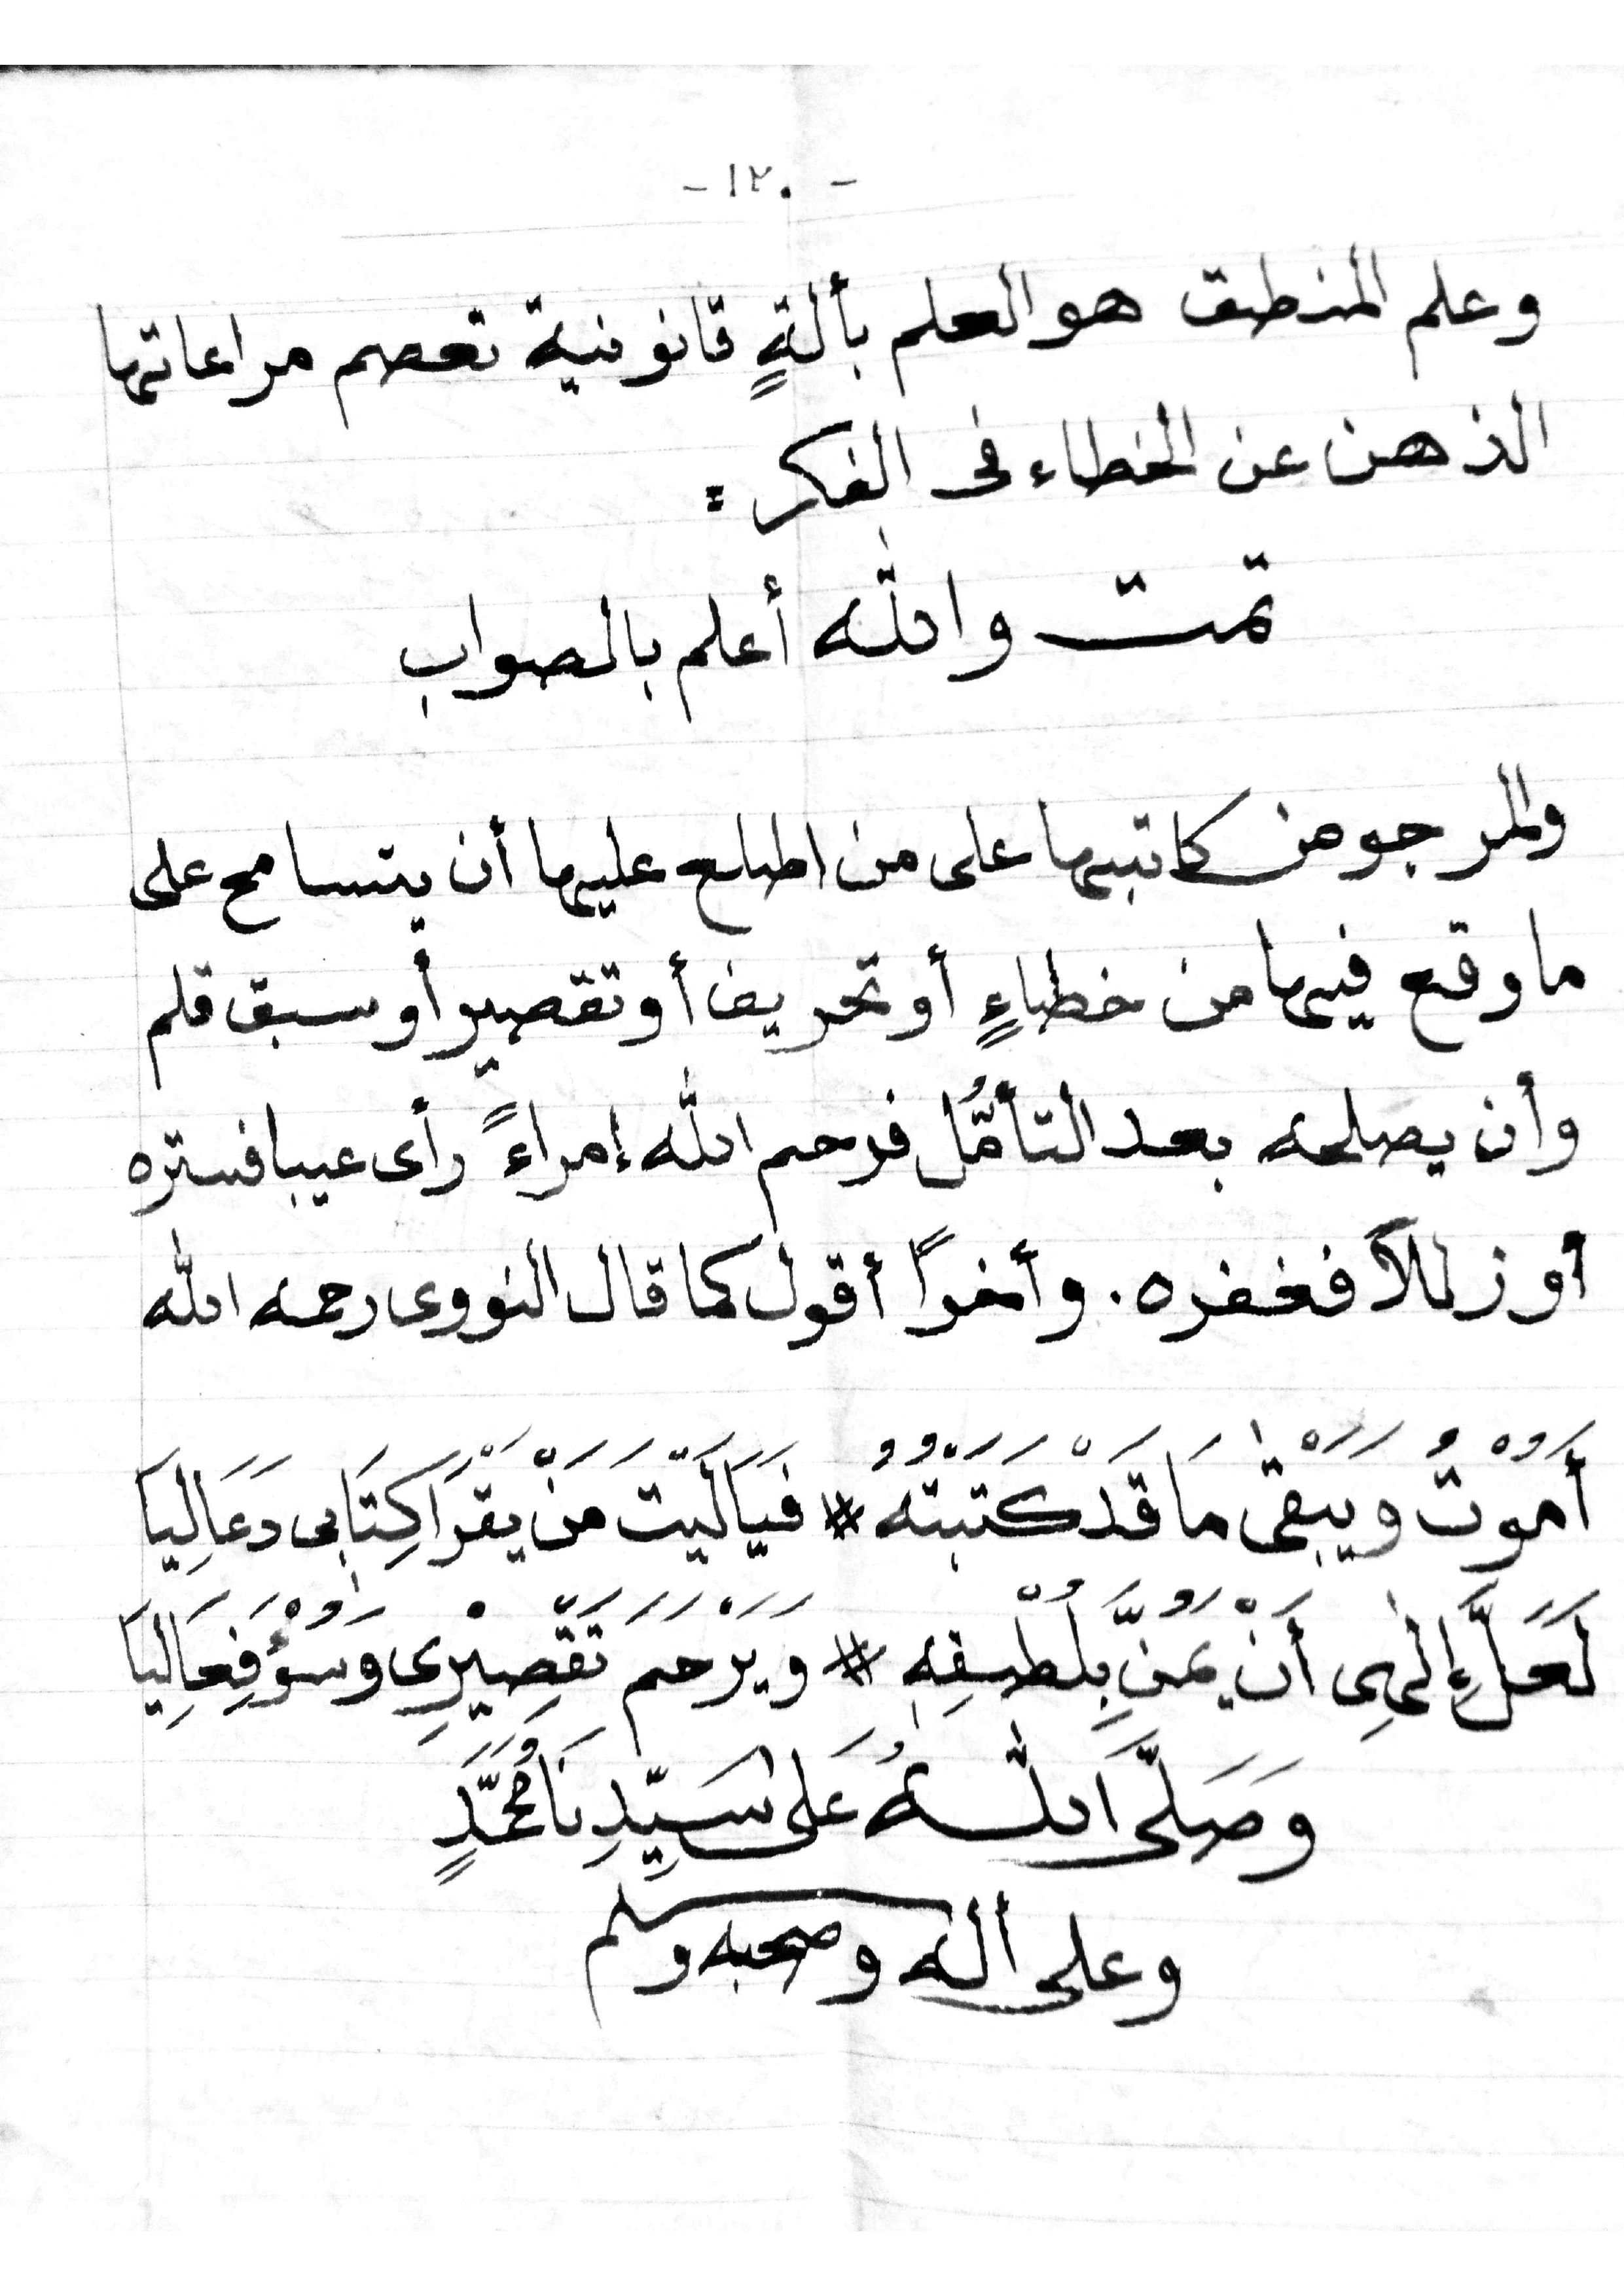 - ١٢٠ -
وعلم المنطق هو العلم بألةٍ قانونية تعصم مراعاتها
الذهن عن الخطاء فى الفكر :
تمت والله أعلم بالصواب
والمرجو من كاتبها على من اطلع عليها أن يتسامح على
ما وقع فيها من خطاءٍ أو تحريف أو تقصير أو سبق قلم
وأن يصلحه بعد التأمُّل فرحم الله إمراءً رأى عيبا فستره
أو زللاً فغفره . وأخراً أقول كما قال النووى رحمه الله
أَمُوْتُ وَيَبْقٰى مَا قَدْ كَتَبْتُهُ # فَيَالَيْتَ مَنْ يَقْرَا كِتَابِى دَعَالِيَا
لَعَلَّ إِلٰهِى أَنْ يَمُنَّ بِلُطْفِهِ # وَيَرْحَمَ تَقْصِيْرِى وَسُوْءَ فِعَالِيَا
وَصَلَّى اللهُ عَلٰى سَيِّدِنَا مُحَمَّدٍ
وعلى أله وصحبه وسلم